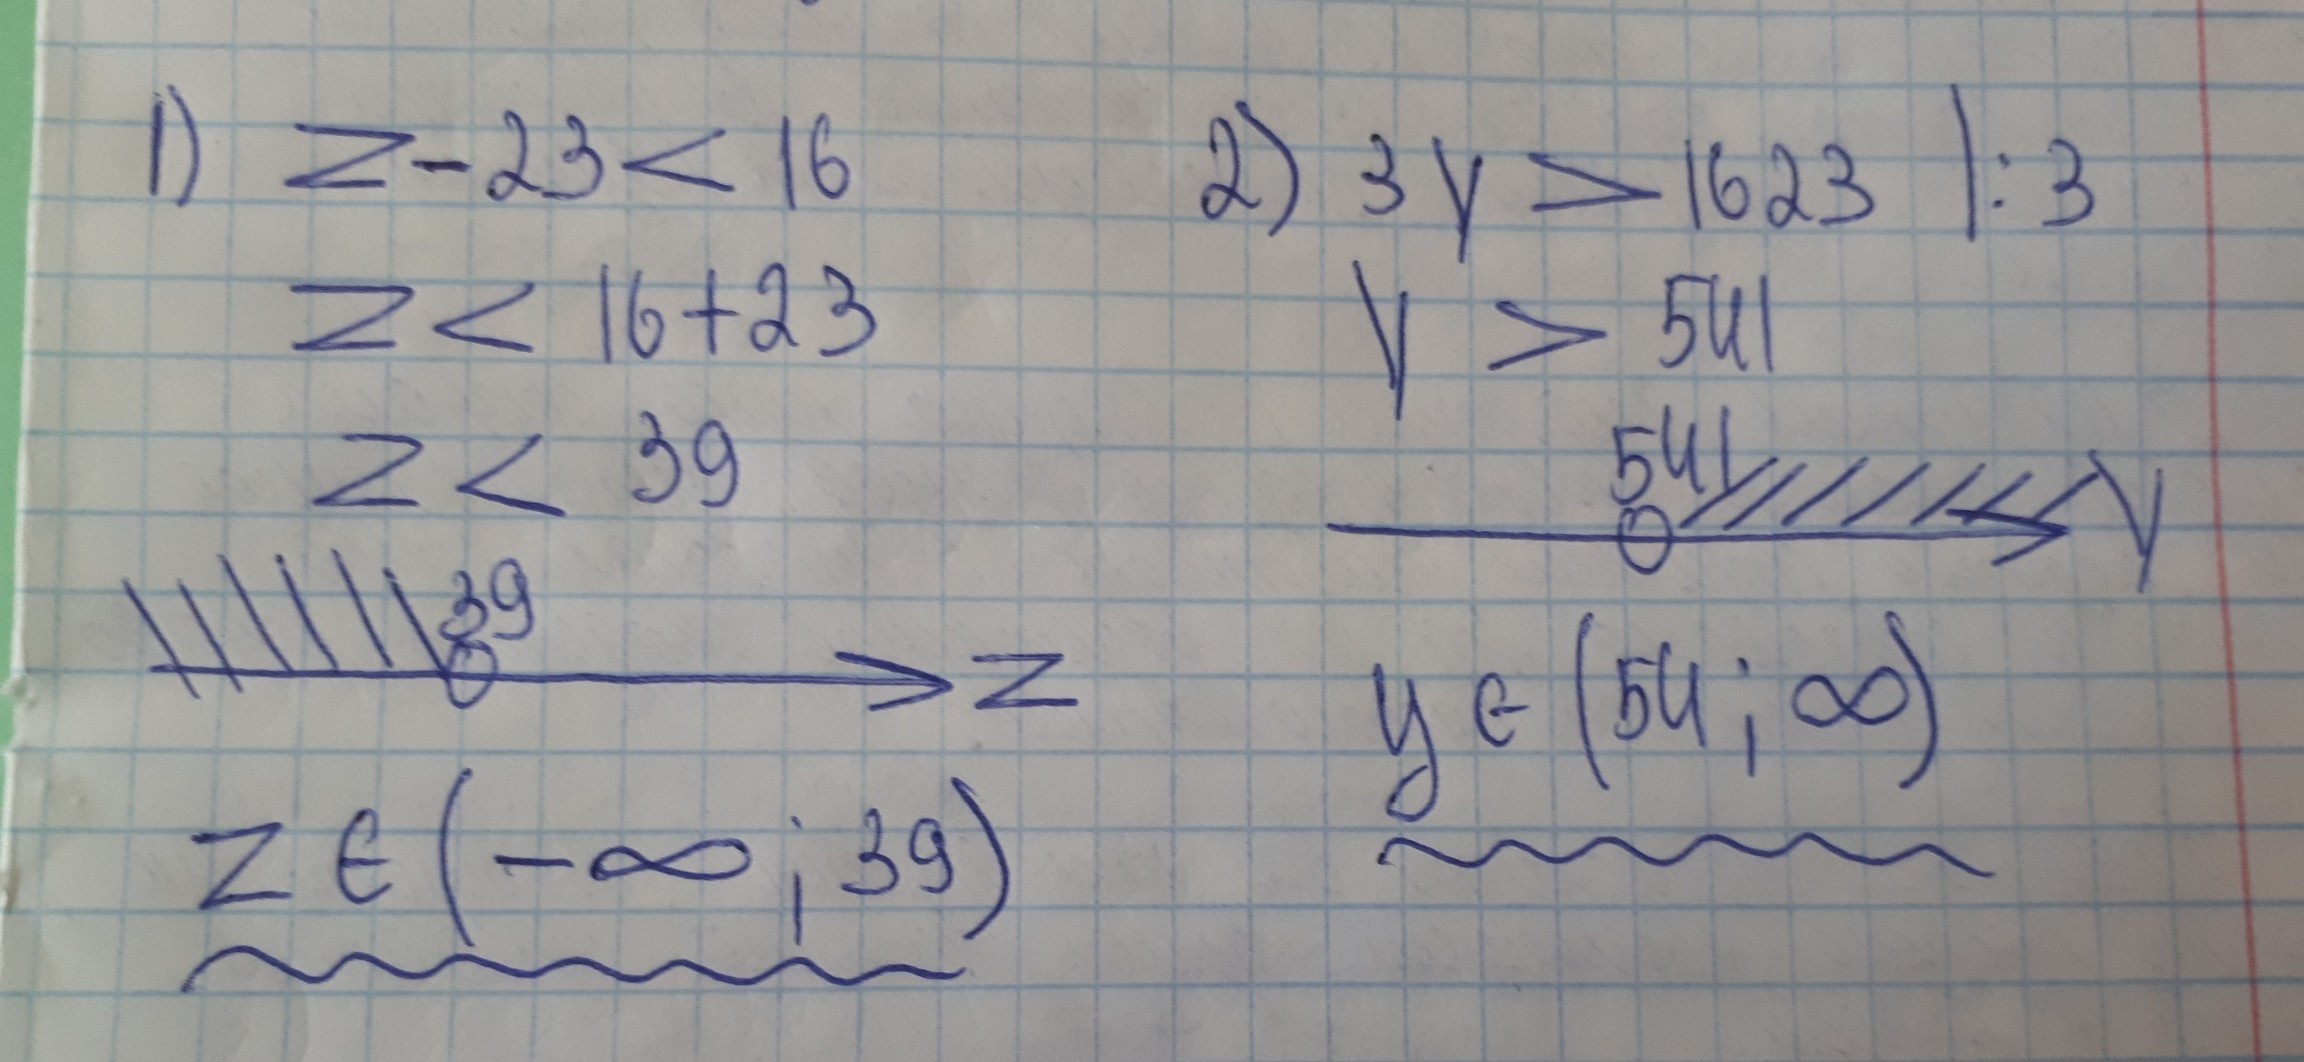 1) z-23<16
z<16+23
z<39
39
z
z∈(-∞;39)
2) 3y>1623 |:3
y>541
541
y
y∈(54;∞)